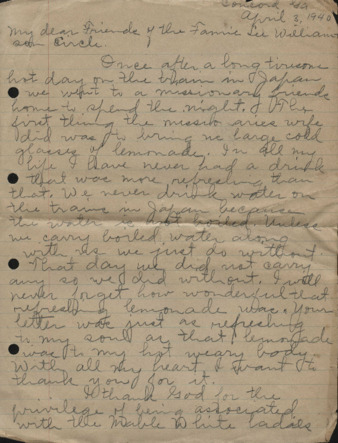 Concord, Ga
April 3, 1940
My dear Friends of the Fannie Lee Williams
son Circle.
Once after a long tiresome
hot day on the train in Japan
we went to a missionary friends
home to spend the night. The
first thing the missionaries wife
did was to bring us large cold
glasses of lemonade. In all my
life I have never had a drink
that was more refreshing than
that. We never drink water on
the trains in Japan because
the water is not boiled. Unless
we carry boiled water along
with us we just do without.
That day we did not carry
any so we did without. I will
never forget how wonderful that
refreshing lemonade was. Your
letter was just as refreshing
to my soul as that lemonade
was to my hot weary body.
With all my heart I want to
thank you for it.
I thank God for the
privilege of being associated
with the Mable White ladies